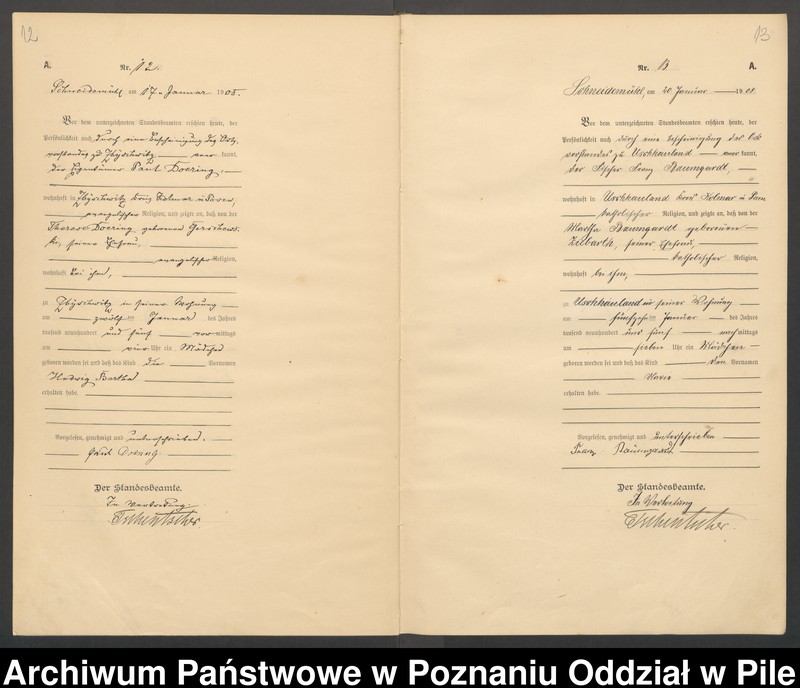 12
A.
Nr. 12.
Schneidemühl am 17. Januar 1905.
Vor dem unterzeichneten Standesbeamten erschien heute, der
Persönlichkeit nach durch eine Bescheinigung des Orts-
vorstandes zu kannt,
der Eigentümer Paul Doering,
wohnhaft in Kreis Kolmar in Posen,
evangelischer Religion, und zeigte an, daß von der
Therese Doering geborenen
seiner Ehefrau,
evangelischer Religion,
wohnhaft bei ihm,
zu in seiner Wohnung
am zwölften Januar des Jahres
tausend neunhundert und fünf vormittags
um vier Uhr ein Mädchen
geboren worden sei und daß das Kind die Vornamen
Hedwig Bertha
erhalten habe.
Vorgelesen, genehmigt und unterschrieben.
Paul Doering
Der Standesbeamte.
In Vertretung.
13
Nr. 13.
A.
Schneidemühl, am 20 Januar 1905
Vor dem unterzeichneten Standesbeamten erschien heute, der
Persönlichkeit nach durch eine Bescheinigung des Orts
vorstandes zu Uschhauland kannt,
der Franz Baumgardt,
wohnhaft in Uschhauland Kreis Kolmar in Posen
katholischer Religion, und zeigte an, daß von der
Martha Baumgardt geborenen
Ziebarth, seiner Ehefrau,
katholischer Religion,
wohnhaft bei ihm,
zu Uschhauland in seiner Wohnung
am fünfzehnten Januar des Jahres
tausend neunhundert und fünf nachmittags
um sieben Uhr ein Mädchen
geboren worden sei und daß das Kind den Vornamen
erhalten habe.
Vorgelesen, genehmigt und unterschrieben
Franz Baumgardt
Der Standesbeamte.
In Vertretung
Archiwum Państwowe w Poznaniu Oddział w Pile